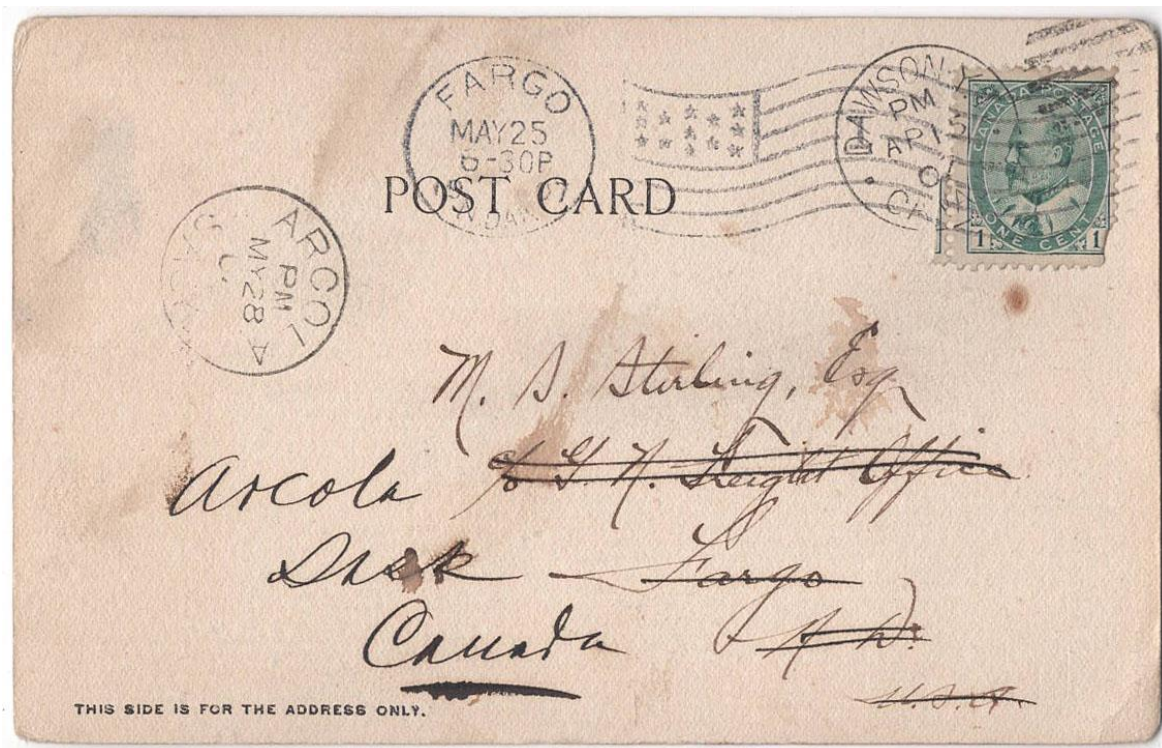 FARGO
MAY 25
6-30P
DAWSON
PM
AP
CANADA POSTAGE
1 ONE CENT 1
POST CARD
ARCOLA
PM
MY 28
M. S. Sterling, Esq
Arcola c/o G. N. Freight Office
Sask Fargo
Canada N. D.
U.S.A.
THIS SIDE IS FOR THE ADDRESS ONLY.